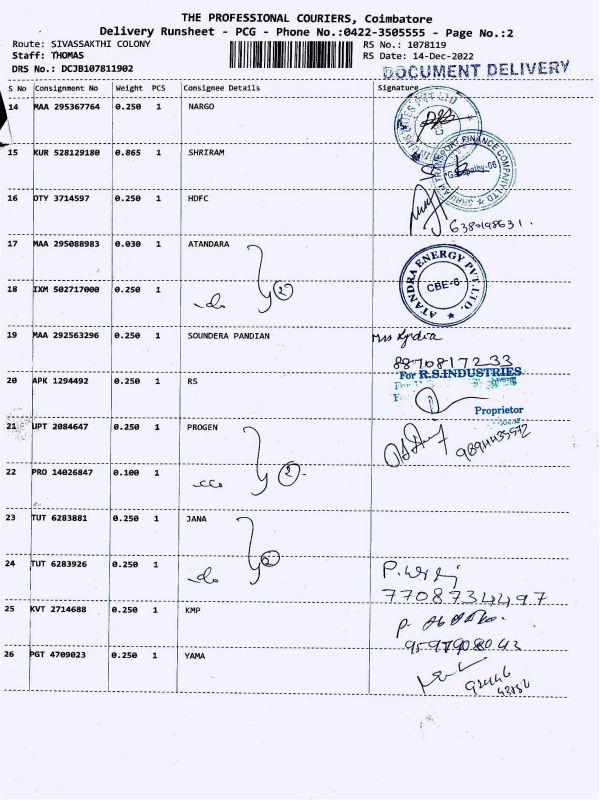 THE PROFESSIONAL COURIERS, Coimbatore
Delivery Runsheet - PCG - Phone No.:0422-3505555 - Page No.:2
Route: SIVASSAKTHI COLONY RS No.: 1078119
Staff: THOMAS RS Date: 14-Dec-2022
DRS No.: DCJB107811902 DOCUMENT DELIVERY
S No Consignment No Weight PCS Consignee Details Signature
14 MAA 295367764 0.250 1 NARGO
15 KUR 528129180 0.865 1 SHRIRAM
SHRIRAM TRANSPORT FINANCE COMPANY LTD
Ganapathy-06
16 DTY 3714597 0.250 1 HDFC
6380198631.
17 MAA 295088983 0.030 1 ATANDARA
ATANDRA ENERGY PVT. LTD.
CBE-6
18 IXM 502717000 0.250 1
do 2
19 MAA 292563296 0.250 1 SOUNDERA PANDIAN
8870817233
20 APK 1294492 0.250 1 RS
For R.S.INDUSTRIES
Proprietor
21 UPT 2084647 0.250 1 PROGEN
22 PRO 14026847 0.100 1
2
23 TUT 6283881 0.250 1 JANA
24 TUT 6283926 0.250 1
do 2
7708734497
25 KVT 2714688 0.250 1 KMP
26 PGT 4709023 0.250 1 YAMA